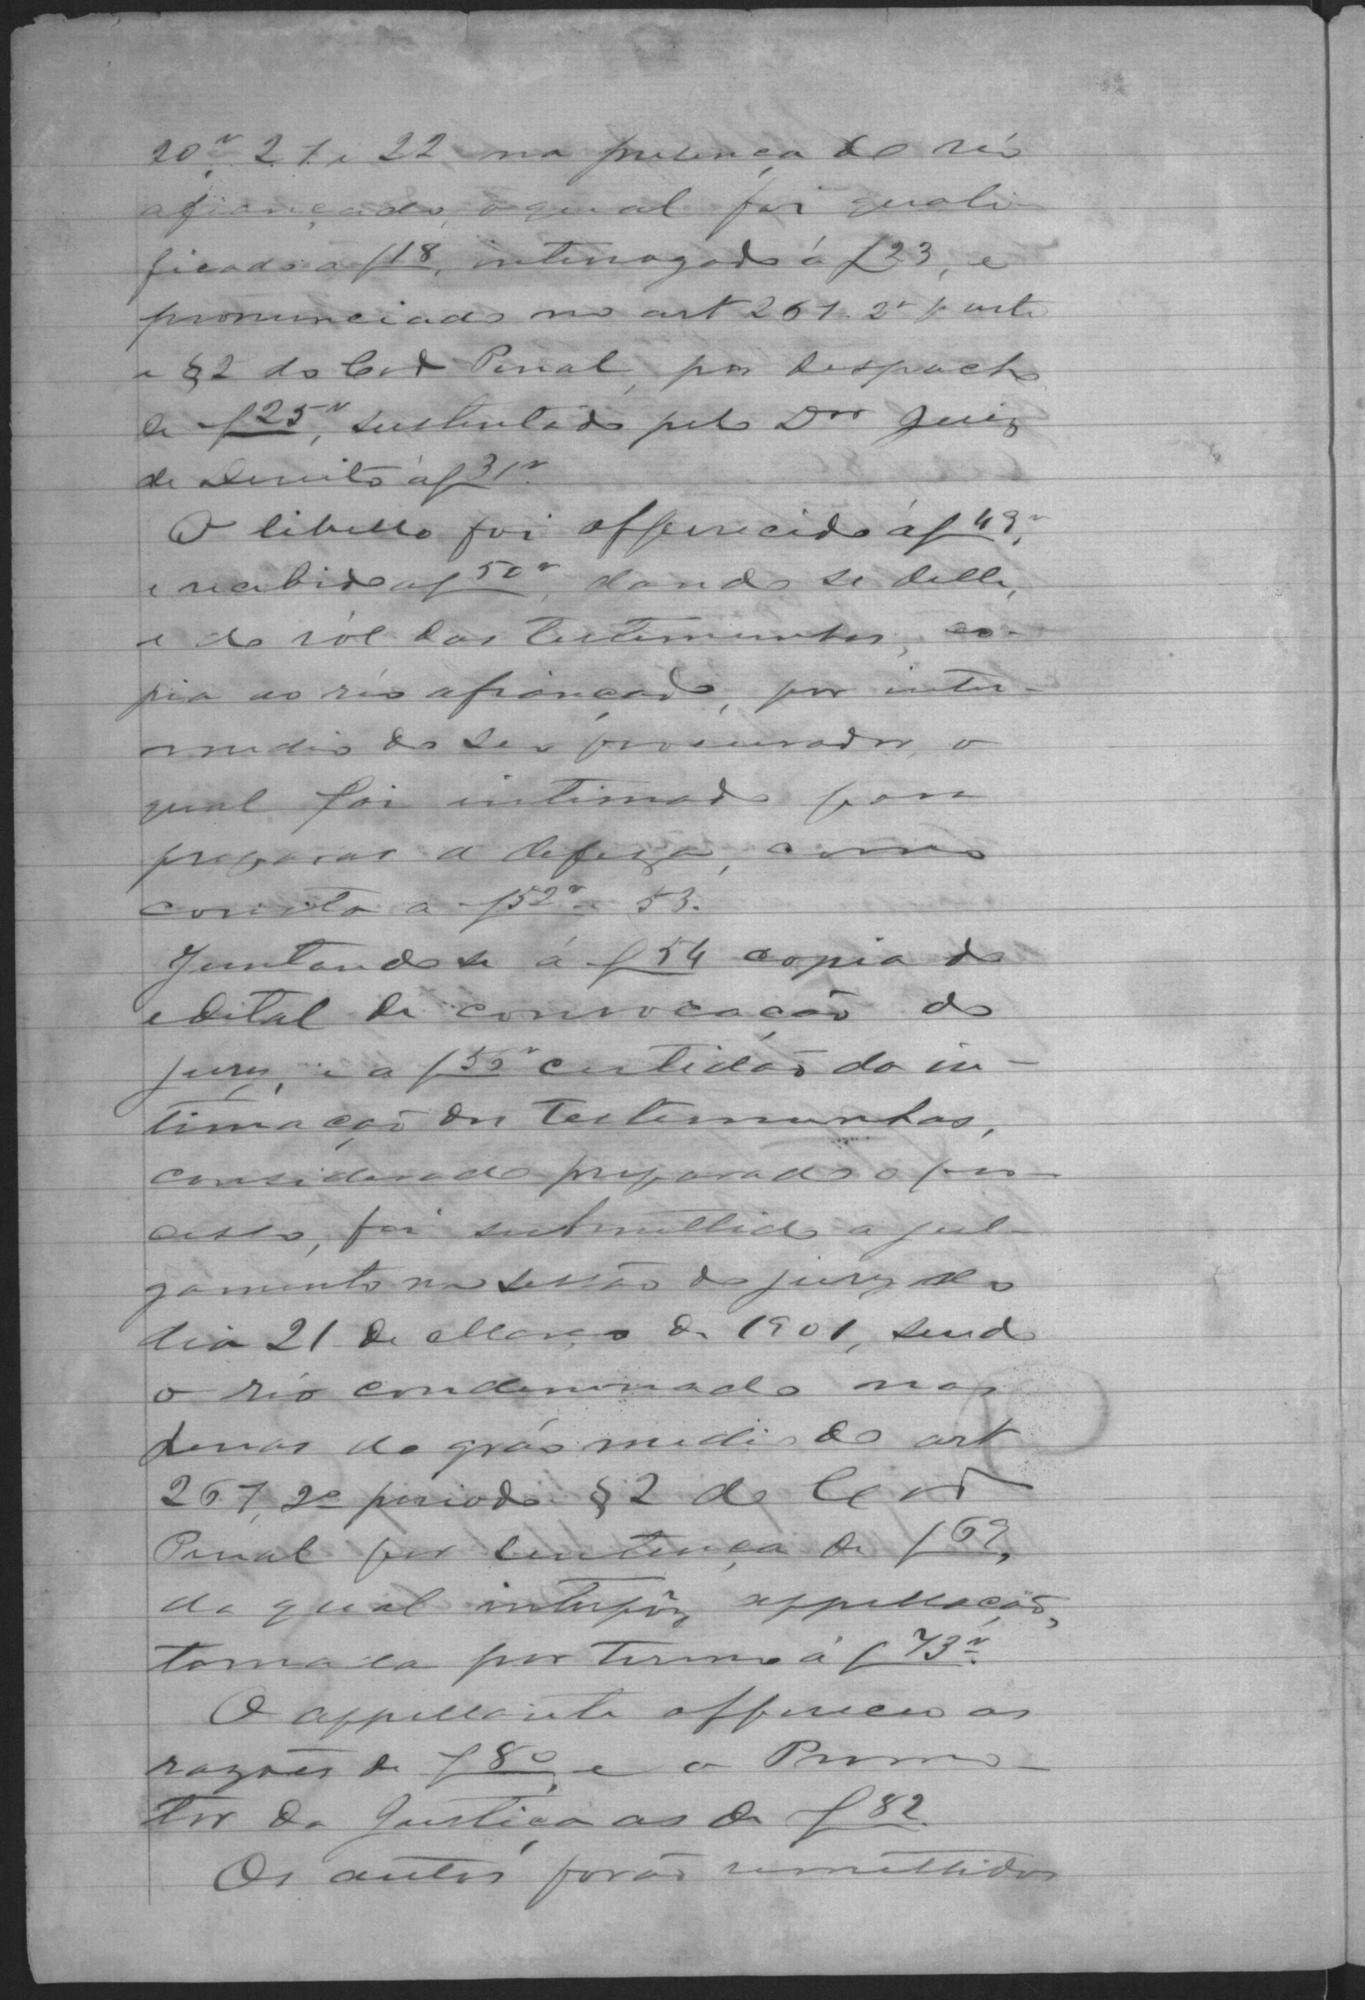 20v, 21 e 22 na presença do réo
afiançado, o qual foi quali-
ficado a f 18, interrogado á f 23, e
pronunciado no art 267. 2ª parte
e § 2 do Cod Penal, por despacho
de f 25v, sustentado pelo Dor Juiz
de Direito á f 31v.
O libello foi offerecido á f 49v,
e recebido a f 50v, dando se delle,
e do ról das testemunhas, co-
pia ao réo afiançado, por inter-
medio do seu procurador, o
qual foi intimado para
preparar a defeza, como
consta a f 52v e 53.
Juntando se á f 54 copia do
edital de convocação do
jury, e a f 55v certidão da in-
timação das testemunhas,
considerado preparado o pro-
cesso, foi submettido a jul-
gamento na sessão do jury do
dia 21 de Março de 1901, sendo
o réo condemnado nas
penas do gráo medio do art
267, 2º periodo § 2 do Cod
Penal por sentença de f 69,
da qual interpôz appellação,
tomada por termo á f 73v.
O appellante offereceu as
razões de f 80, e o Promo-
tor da Justiça as de f 82.
Os autos forão remettidos